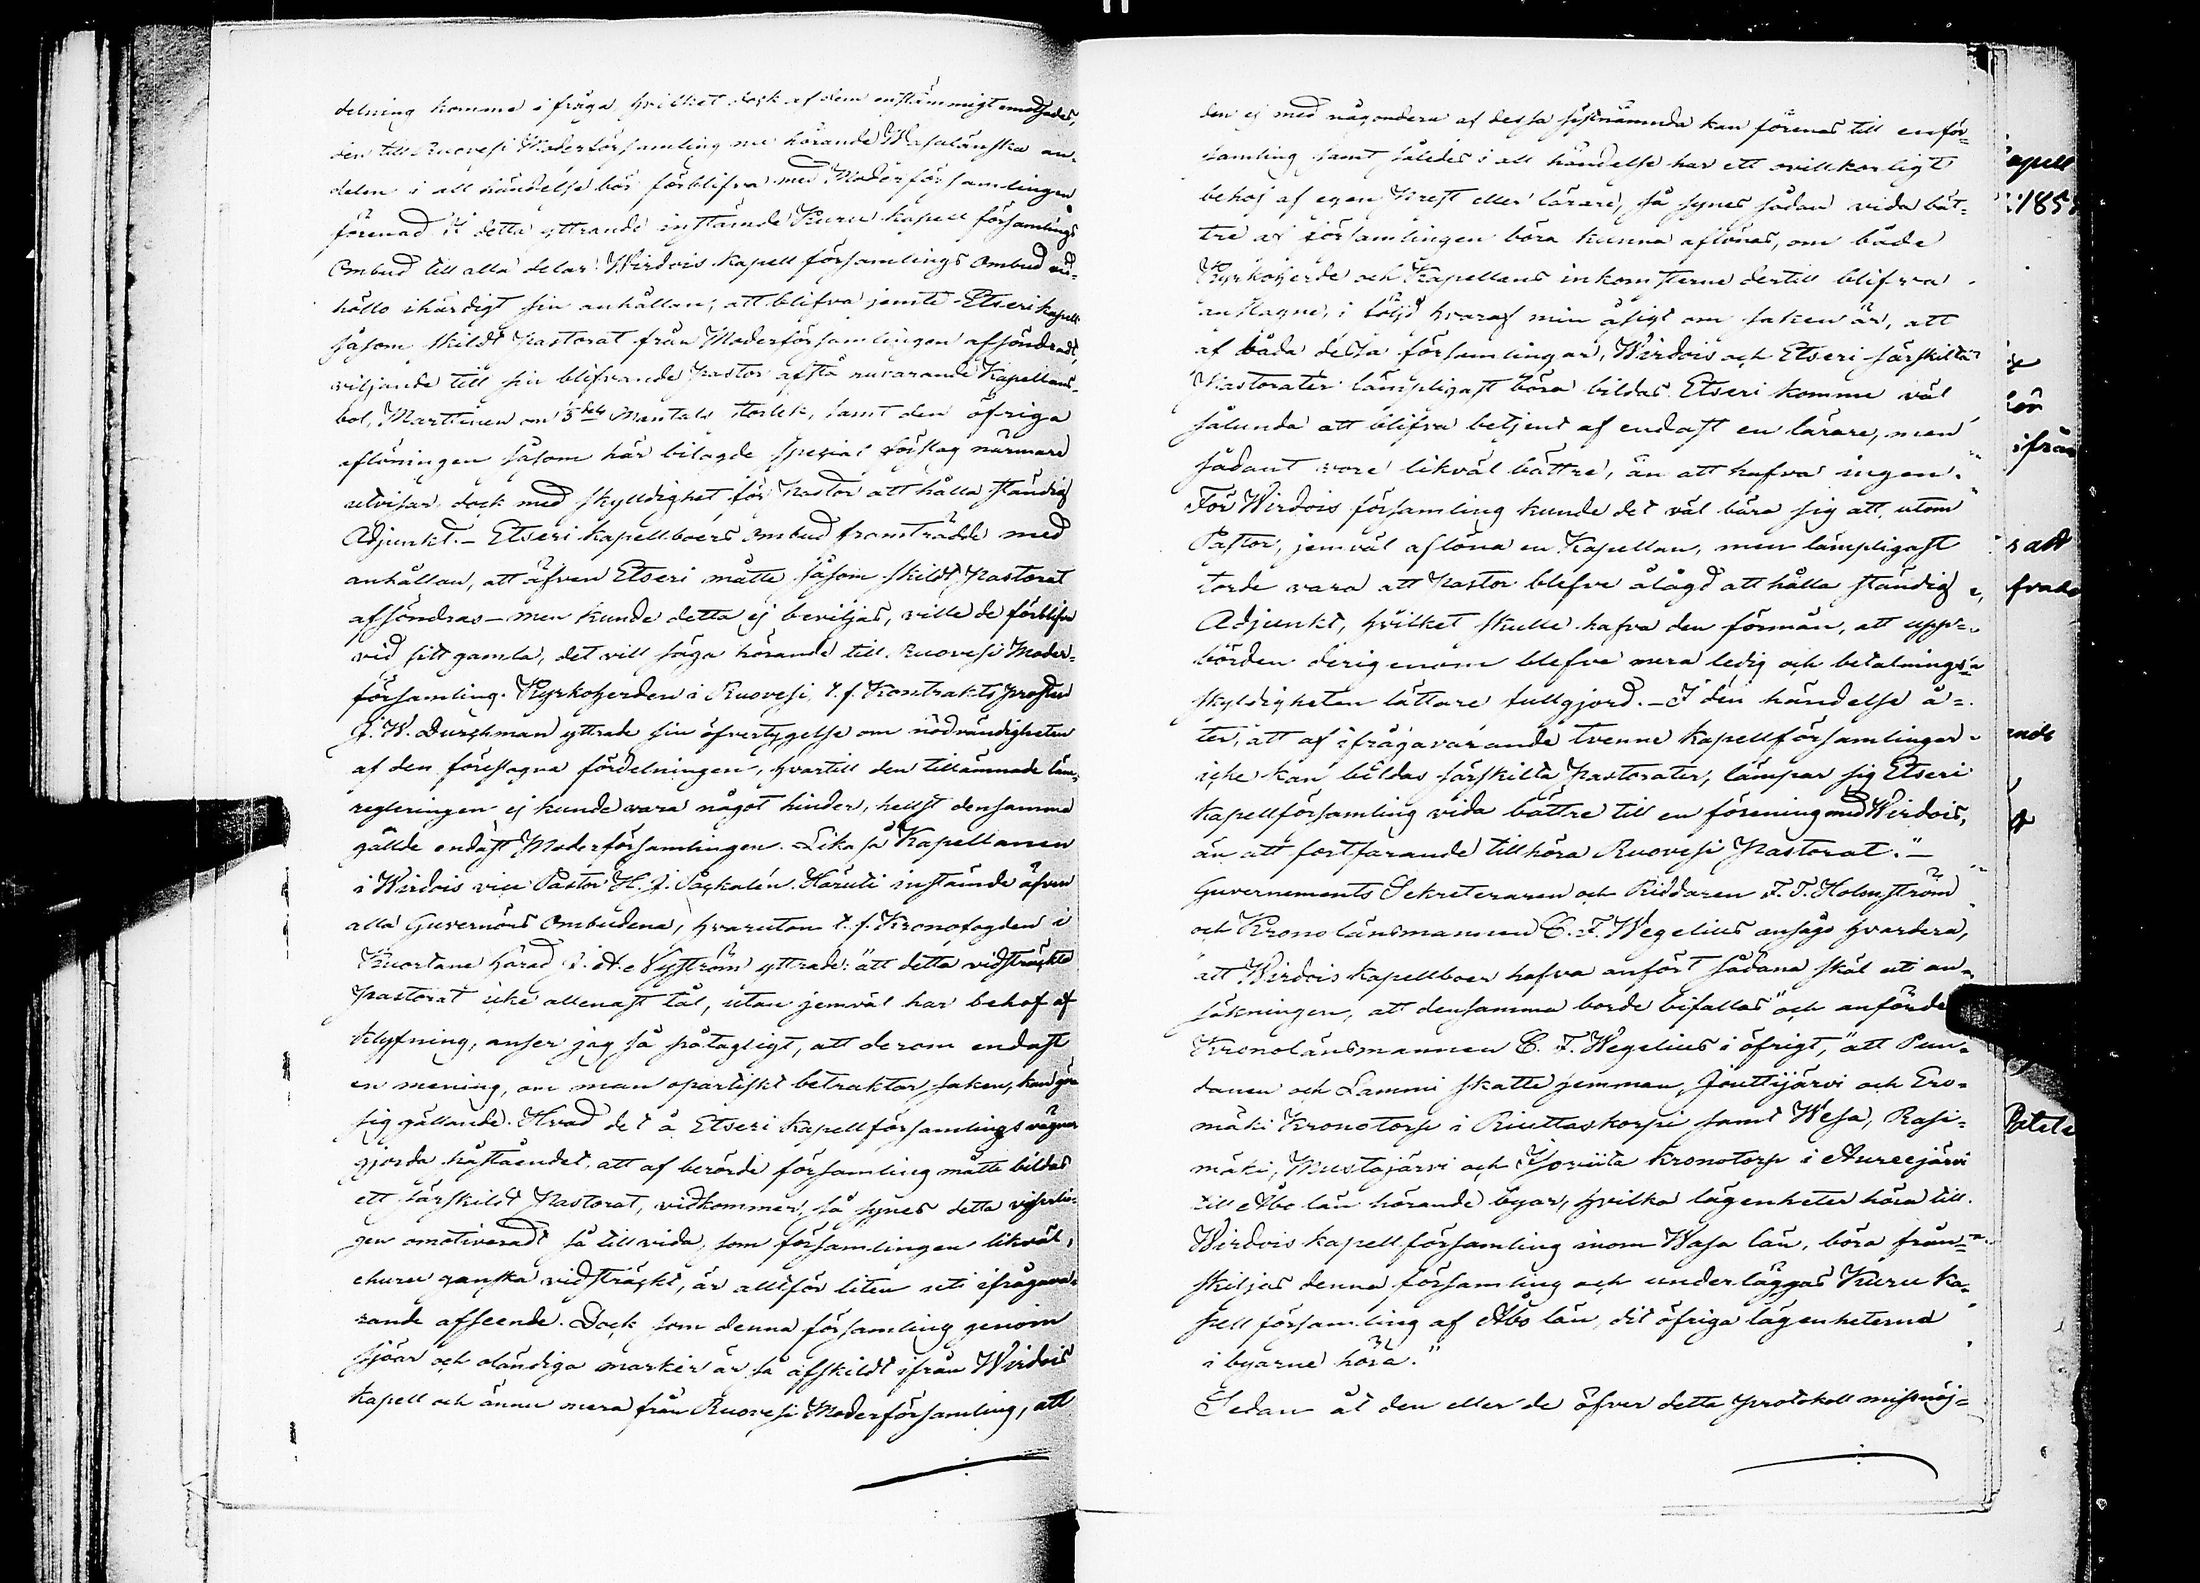 delning komme i fråga hvilket dock af dem enstämmigt emotsades,
den till Ruovesi Moderförsamling nu hörande Wasalänska an-
delen i all händelse bör förblifva med Moderförsamlingen
förenad. I detta yttrande instämde Kuru kapell församlings
Ombud till alla delar. Wirdois kapell församlings Ombud vid-
höllo ihärdigt sin anhållan, att blifva jemte Etseri kapell
såsom skildt Pastorat från Moderförsamlingen afsöndradt,
viljande till sin blifvande Pastor afstå nuvarande Kapellans-
bol, Marttinen om Mantals storlek, samt den öfriga
aflöningen såsom här bilagde special förslag närmare
utvisar dock med skylldighet för Pastor att hålla ständig
Adjunkt. – Etseri kapellboers ombud framträdde med
anhållan, att äfven Etseri måtte såsom skildt Pastorat
afsöndras – men kunde detta ej beviljas, ville de förblifva
vid sitt gamla, det vill säga hörande till Ruovesi Moder-
församling. Kyrkoherden i Ruovesi, t. f. Kontrakts Prosten
J. W. Durchman yttrade sin öfvertygelse om nödvändigheten
af den föreslagna fördelningen, hvartill den tillämnade län-
regleringen ej kunde vara något hinder, hellst densamma
gällde endast Moderförsamlingen. Lika så Kapellanen
i Wirdois vice Pastor H. J. Häruti instämde äfven
alla Guvernörs Ombudena, hvarutom t. f. Kronofogden i
Kuortane härad Nyström yttrade: "att detta vidsträckta
Pastorat icke allenast tål, utan jemväl har behof af
klyfning, anser jag så påtagligt, att derom endast
en mening, om man opartiskt betraktar saken, kan göra
sig gällande. Hvad det å Etseri kapellförsamlings vägnar
gjorda påståendet, att af berörde församling måtte bildas
ett särskildt Pastorat, vidkommer, så synes detta visserli-
gen omotiveradt så tillvida, som församlingen likväl,
churu ganska vidsträckt, är alltför liten uti ifrågava-
rande afseende. Dock som denna församling genom
sjöar och oländiga marker är så afskildt ifrån Wirdois
kapell och ännu mera från Ruovesi Moderförsamling, att
den ej med någondera af dessa sistnämnda kan förenas till en för-
samling samt således i all händelse har ett ovillkorligt
behof af egen Prest eller lärare, så synes sådan vida bät-
tre af församlingen böra kunna aflönas, om både
Kyrkoherde och Kapellans inkomsterne dertill blifva
anslagne, i följd hvaraf min åsigt om saken är, att
af båda dessa församlingar, Wirdois och Etseri särskilta
Pastorater lämpligast böra bildas. Etseri komme väl
sålunda att blifva betjent af endast en lärare, men
sådant vore likväl bättre, än att hafva ingen.
För Wirdois församling kunde det väl bära sig att, utom
Pastor, jemväl aflöna en Kapellan, men lämpligast
torde vara att Pastor blefve ålagd att hålla ständig
Adjunkt, hvilket skulle hafva den förmån, att upp-
börden derigenom blefve mera ledig och betalnings-
skyldigheten lättare fullgjord. – I den händelse å-
ter, att af ifrågavarande tvenne kapellförsamlingar
icke kan bildas särskilta Pastorater, lämpar sig Etseri
kapellförsamling vida bättre till en förening med Wirdois,
än att fortfarande tillhöra Ruovesi Pastorat." –
Guvernements Sekreteraren och Riddaren F. F. Holmström
och Kronolänsmannen C. F. Wegelius ansågo hvardera,
"att Wirdois kapellboer hafva anfört sådana skäl uti an-
sökningen, att densamma borde bifallas" och anförde
Kronolänsmannen C. F. Wegelius i öfrigt, "att Pun-
danen och Lammi skatte hemman, Jouttijärvi och Ero-
mäki Kronotorp i Riuttaskorpi samt Wesa, Rasi-
mäki, Mustajärvi och kronotorp i Aureejärvi
till Åbo län hörande byar, hvilka lägenheter höra till
Wirdois kapell församling inom Wasa län, böra från-
skiljas denna församling och underläggas Kuru ka-
pell församling af Åbo län, dit öfriga lägenheterna
i byarne höra."
Sedan åt den eller de öfver detta protokoll missnöj-
apell
185
ifrån
att